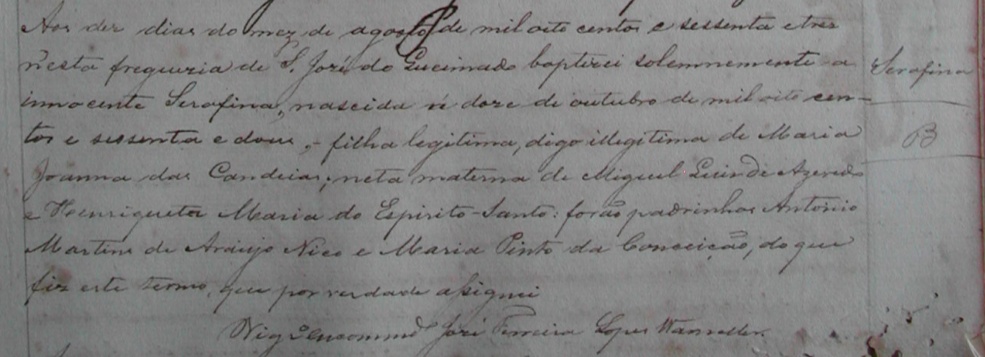 Aos dez dias do mez de agosto de mil oito centos e sessenta e tres
n'esta freguezia de S. José do Queimado baptizei solemnemente a
Serafina
innocente Serafina, nascida á doze de outubro de mil oito cen-
tos e sessenta e dous, - filha legitima, digo illegitima de Maria
B
Joanna das Candeias; neta materna de Miguel Luis de Azevedo
e Henriqueta Maria do Espirito-Santo: forão padrinhos Antonio
Martins de Araujo Nico e Maria Pinto da Conceição, do que
fiz este termo, que por verdade assignei
Vigr.o Encommd José Ferreira Lopes Wanzeller.